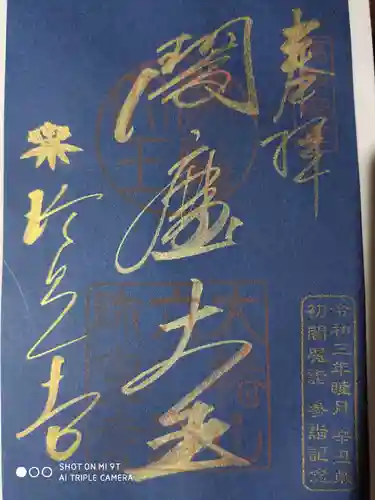 奉拝
閻魔大王
珍皇寺
令和三年睦月 辛丑歳
初閻魔詣 参詣記念
SHOT ON MI 9T
AI TRIPLE CAMERA